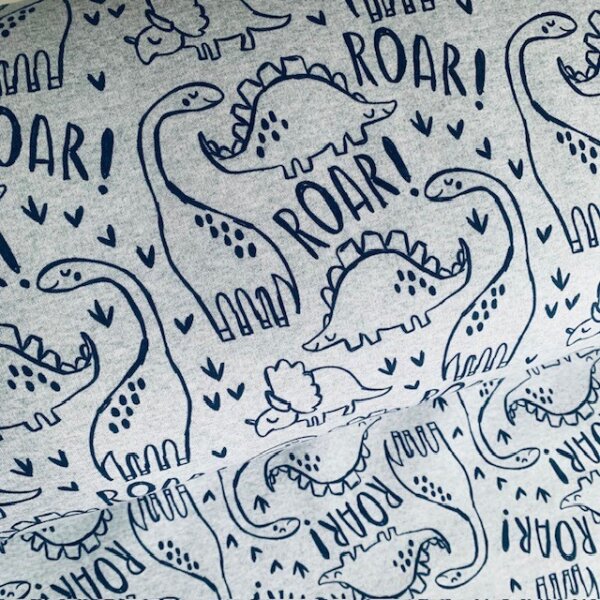 ROAR!
OAR!
ROAR!
ROA
ROAR!
ROAR!
ROAR!